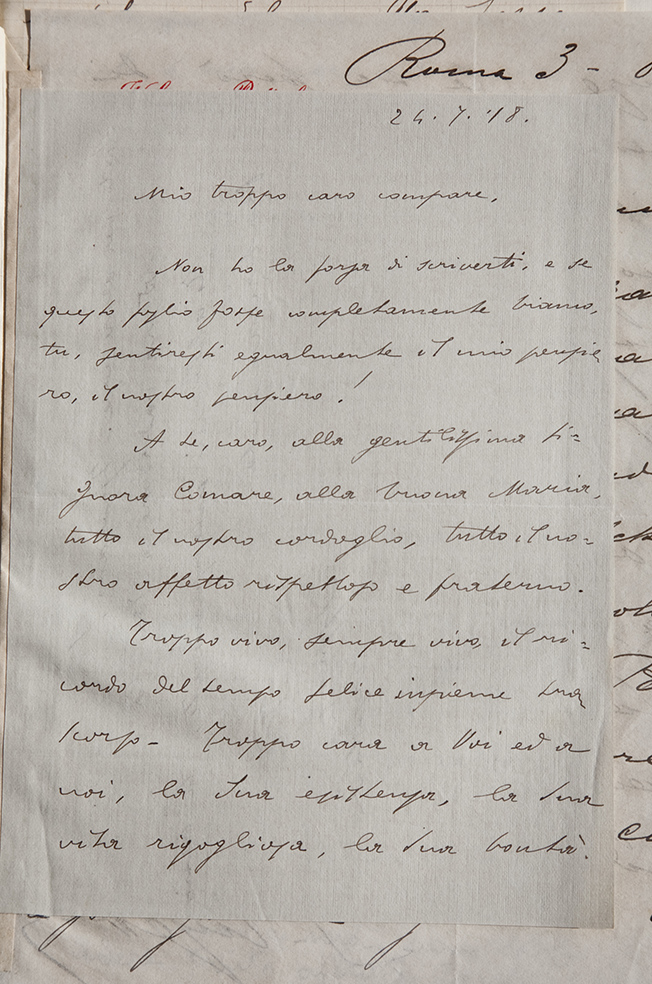 Roma 3 -
24. 7. '18.
Mio troppo caro compare,
Non ho la forza di scriverti, e se
questo foglio fosse completamente bianco,
tu, sentiresti egualmente il mio pensie
ro, il nostro pensiero!
A te, caro, alla gentilissima Si=
gnora Comare, alla buona Maria,
tutto il nostro cordoglio, tutto il no=
stro affetto rispettoso e fraterno.
Troppo vivo, sempre vivo, il ri=
cordo del tempo felice insieme tra
scorso - Troppo cara a Voi ed a
noi, la Sua esistenza, la Sua
vita rigogliosa, la Sua bontà.